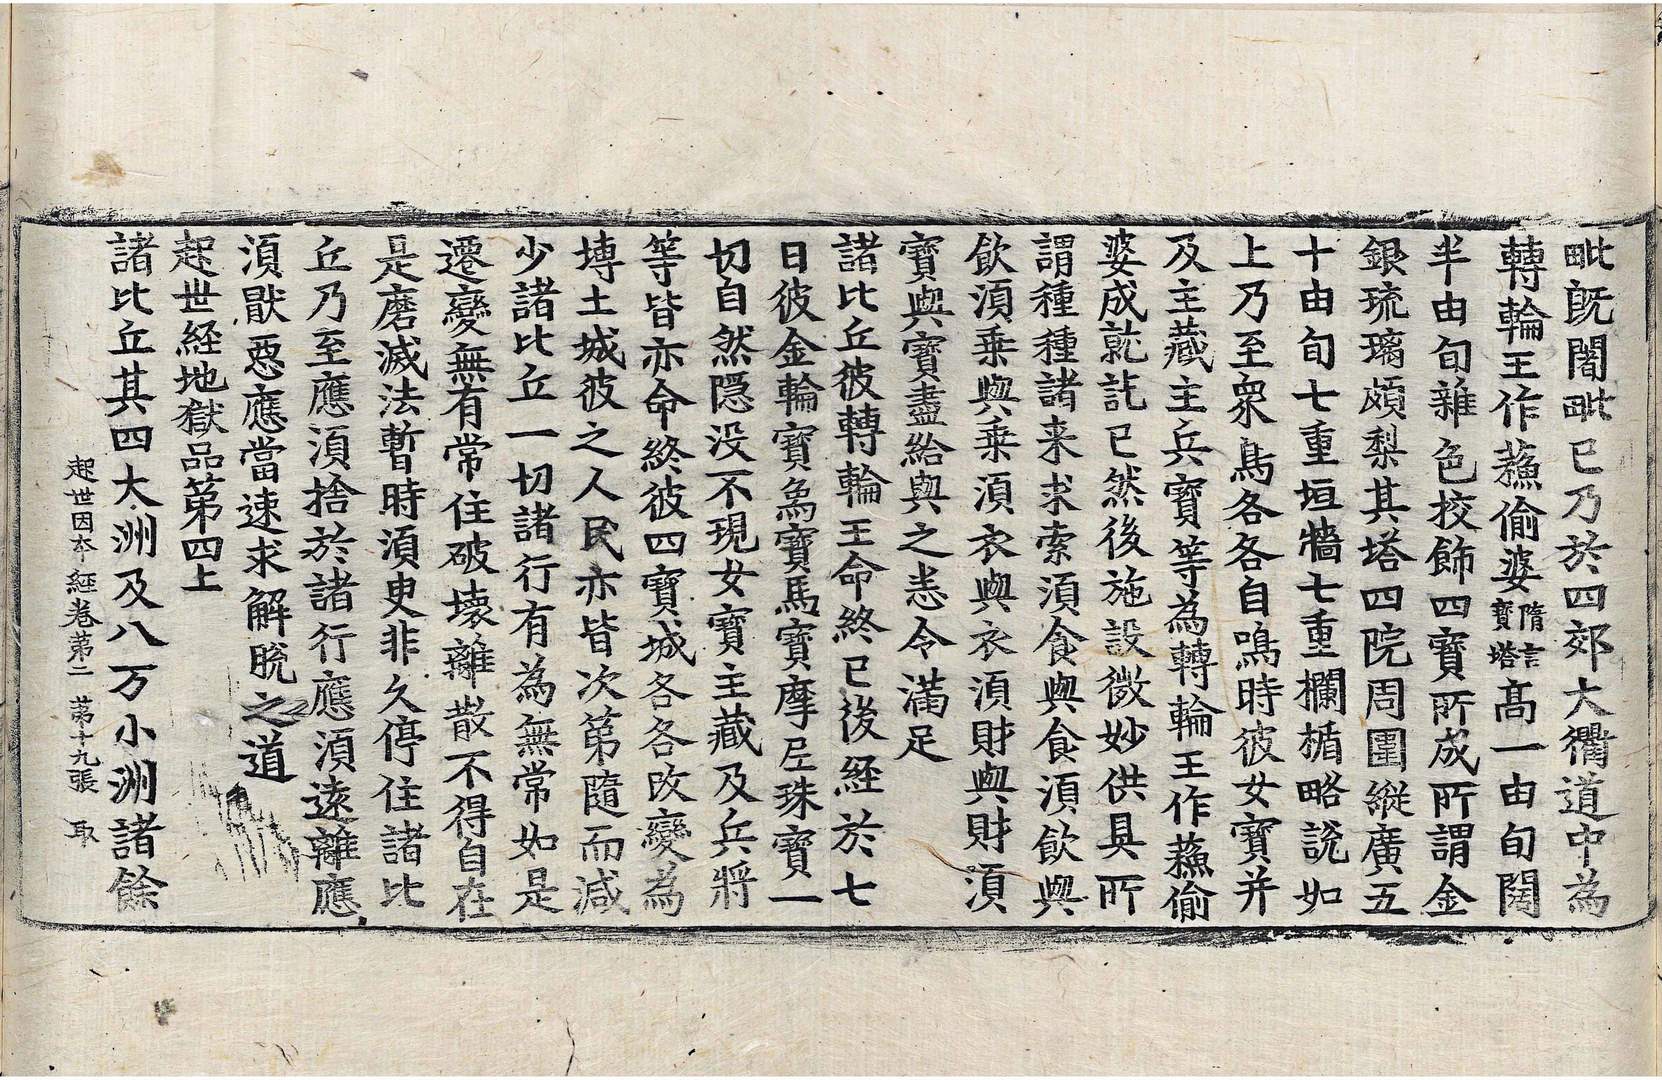 毗旣闍毗已乃於四郊大衢道中為
轉輪王作蘓偷婆隋言寶塔高一由旬闊
半由旬雜色挍飾四寶所成所謂金
銀琉璃頗梨其塔四院周圍縱廣五
十由旬七重垣牆七重欄楯略說如
上乃至衆鳥各各自鳴時彼女寶并
及主藏主兵寶等為轉輪王作蘓偷
婆成就訖已然後施設微妙供具所
謂種種諸来求索湏食與食湏飲與
飲湏乗與乗湏衣與衣湏財與財湏
寶與寶盡給與之悉令滿足
諸比丘彼轉輪王命終已後經於七
日彼金輪寶象寶馬寶摩尼珠寶一
切自然隠没不現女寶主藏及兵將
等皆亦命終彼四寶城各各改變為
塼土城彼之人民亦皆次第隨而減
少諸比丘一切諸行有為無常如是
遷變無有常住破壞離散不得自在
是磨滅法暫時湏臾非久停住諸比
丘乃至應湏捨於諸行應湏遠離應
湏猒惡應當速求解脫之道
起世経地獄品第四上
諸比丘其四大洲及八万小洲諸餘
起世因夲經卷苐二 苐十九張 取